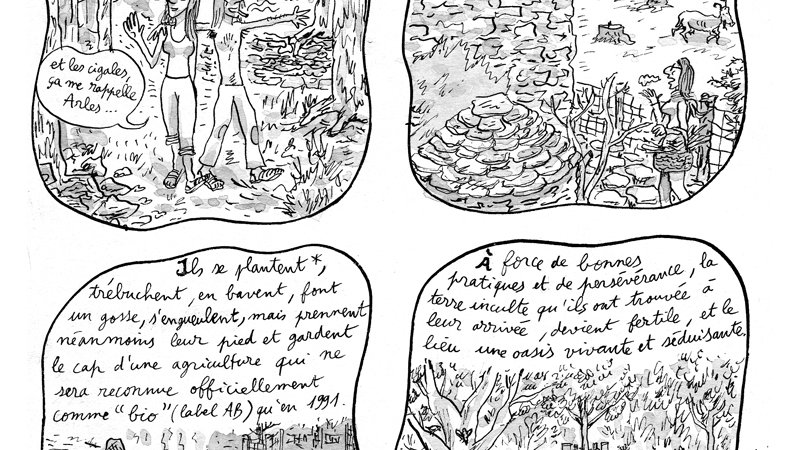 et les cigales,
ça me rappelle
Arles...
Ils se plantent*,
trébuchent, en bavent, font
un gosse, s'engueulent, mais prennent
néanmoins leur pied et gardent
le cap d'une agriculture qui ne
sera reconnue officiellement
comme "bio" (label AB) qu'en 1991.
À force de bonnes
pratiques et de persévérance, la
terre inculte qu'ils ont trouvée à
leur arrivée, devient fertile, et le
lieu une oasis vivante et séduisante.